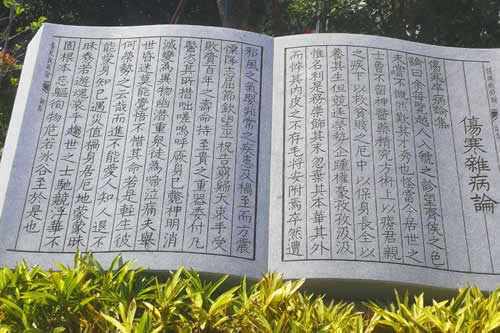 傷寒雜病論
傷寒卒病論集
論曰余每覽越人入虢之診望齊侯之色
未嘗不慨然歎其才秀也怪當今居世之
士曾不留神醫藥精究方術上以療君親
之疾下以救貧賤之厄中以保身長全以
養其生但競逐榮勢企踵權豪孜孜汲汲
惟名利是務崇飾其末忽棄其本華其外
而悴其內皮之不存毛將安附焉卒然遭
邪風之氣嬰非常之疾患及禍至而方震
慄降志屈節欽望巫祝告窮歸天束手受
敗賫百年之壽命持至貴之重器委付凡
醫恣其所措咄嗟嗚呼厥身已斃神明消
滅變為異物幽潛重泉徒為啼泣痛夫舉
世昏迷莫能覺悟不惜其命若是輕生彼
何榮勢之云哉而進不能愛人知人退不
能愛身知己遇災值禍身居厄地蒙蒙昧
昧惷若遊魂哀乎趨世之士馳競浮華不
固根本忘軀徇物危若冰谷至於是也